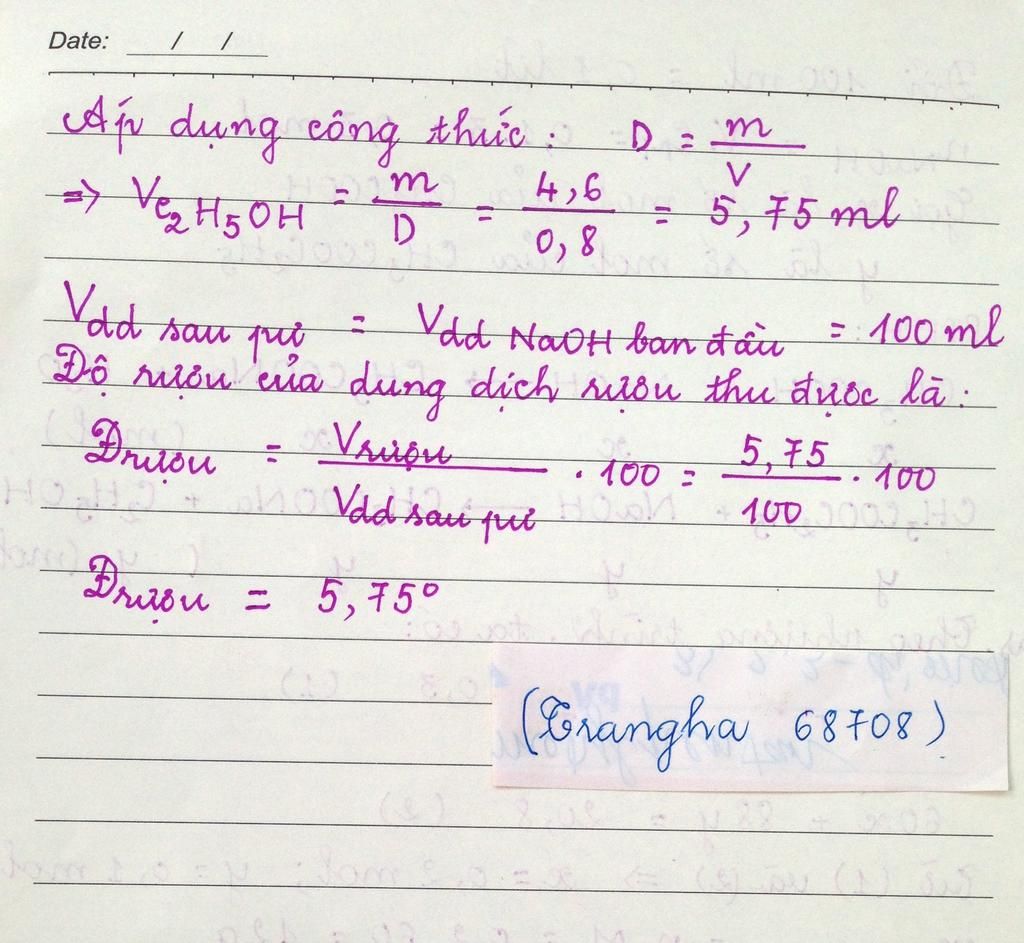 Date: / /
Áp dụng công thức: D = m / V
=> VC₂H₅OH = m / D = 4,6 / 0,8 = 5,75 ml
Vdd sau pư = Vdd NaOH ban đầu = 100 ml
Độ rượu của dung dịch rượu thu được là:
Đrượu = Vrượu / Vdd sau pư . 100 = 5,75 / 100 . 100
Đrượu = 5,75°
(Trangha 68708)